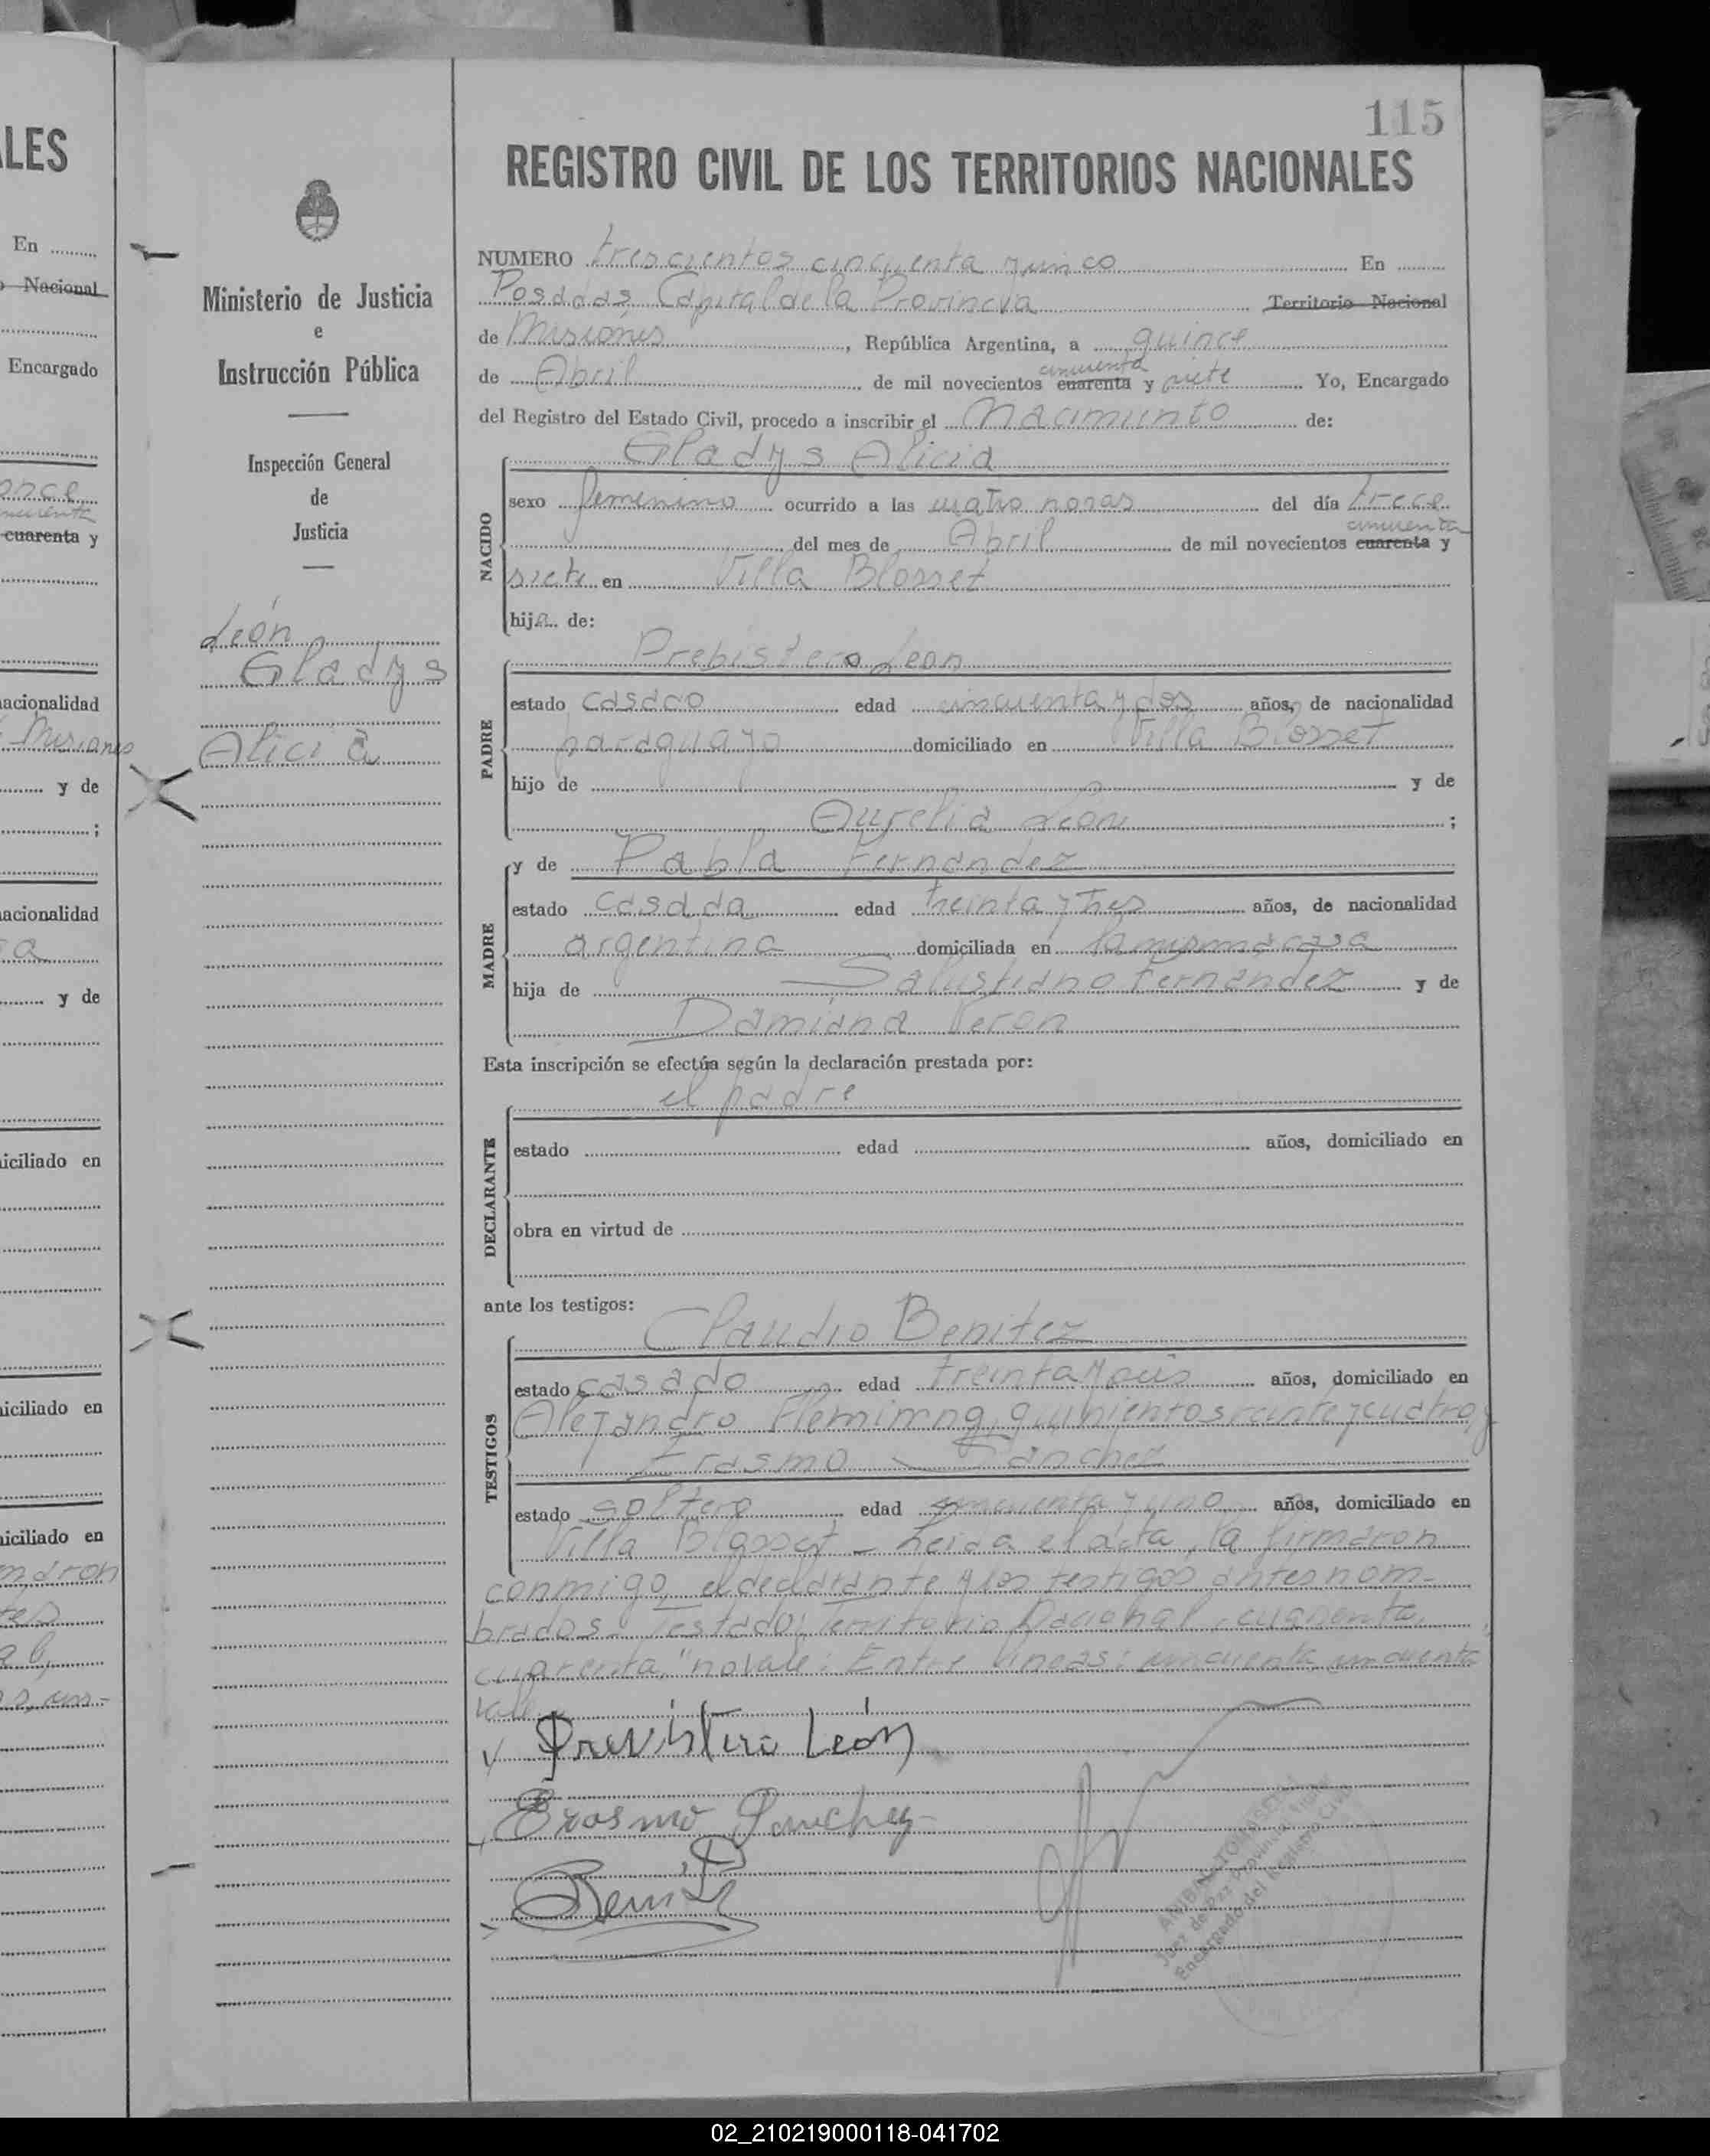 LES
En
Nacional
Encargado
once
cincuenta
cuarenta y
nacionalidad
Misiones
y de
;
nacionalidad
y de
iciliado en
iciliado en
iciliado en
Ministerio de Justicia
e
Instrucción Pública
Inspección General
de
Justicia
León
Gladys
Alicia
115
REGISTRO CIVIL DE LOS TERRITORIOS NACIONALES
NUMERO trescientos cincuenta y cinco En
Posadas Capital de la Provincia Territorio Nacional
de Misiones, República Argentina, a quince
cincuenta
de Abril de mil novecientos cuarenta y siete Yo, Encargado
del Registro del Estado Civil, procedo a inscribir el Nacimiento de:
Gladys Alicia
NACIDO
sexo femenino ocurrido a las cuatro horas del día trece
cincuenta
del mes de Abril de mil novecientos cuarenta y
siete en Villa Blosset
hija de:
PADRE
Prebistero León
estado casado edad cincuenta y dos años, de nacionalidad
paraguayo domiciliado en Villa Blosset
hijo de y de
Aurelia León ;
MADRE
y de Pabla Fernández
estado casada edad treinta y tres años, de nacionalidad
argentina domiciliada en la misma casa
hija de Salustiano Fernandez y de
Damiana Veron
Esta inscripción se efectúa según la declaración prestada por:
DECLARANTE
el padre
estado edad años, domiciliado en
obra en virtud de
ante los testigos:
TESTIGOS
Claudio Benitez
estado casado edad treinta y seis años, domiciliado en
Alejandro Flemimng, quinientos veinte y cuatro y
Erasmo Sanchez
estado soltero edad cincuenta y uno años, domiciliado en
Villa Blosset - Leida el acta, la firmaron
conmigo el declarante y los testigos antes nom-
brados - Testado: Territorio Nacional, cuarenta,
cuarenta, "no vale: Entre lineas: cincuenta, cincuenta
vale
Previstero León
Erasmo Sanchez
Benitez
Juez de Paz Provincial Titular
Encargado del Registro Civil
02_210219000118-041702